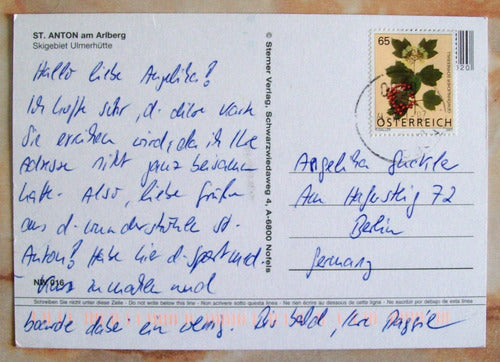 ST. ANTON am Arlberg
Skigebiet Ulmerhütte
Hallo liebe Angelika!
Ich hoffe sehr, d. diese Karte
Sie erreichen wird, da ich Ihre
Adresse nicht ganz beisammen
hatte. Also, liebe Grüße
aus d. wunderschönen St.
Anton! Habe hier d. Sportmed.
Kurs zu machen und
NEU 016
Schreiben Sie nicht unter diese Zeile - Do not write below this line - Non scrivere sotto questa linea - Ne rien écrire au dessous de cette ligne - No escribir por debajo de esta línea
boarde dabei ein wenig. Bis bald, Ihre
© Sterner Verlag, Schwarzwiedaweg 4, A-6800 Nofels
65
ÖSTERREICH
Angelika
Am 72
Berlin
Germany